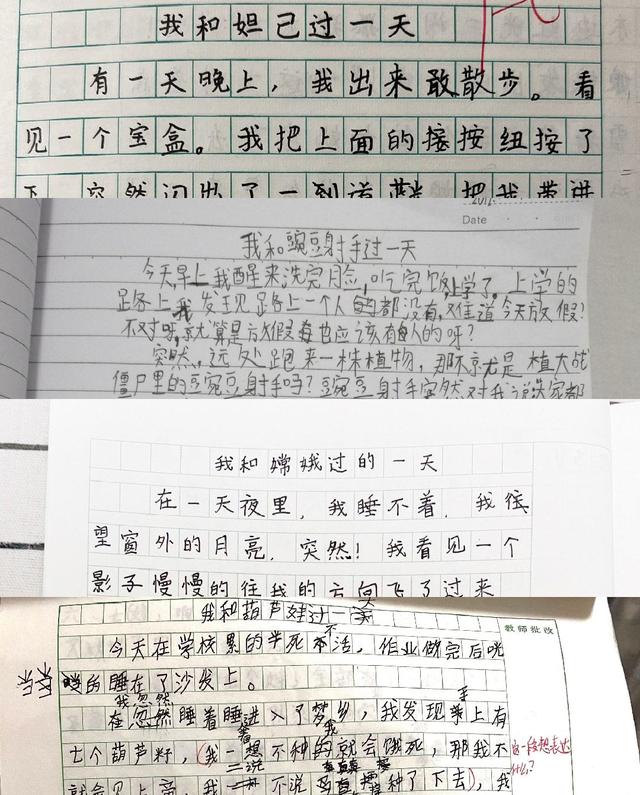 我和妲己过一天
有一天晚上，我出来敢散步。看
见一个宝盒。我把上面的接按纽按了
突然闪出了一到道 把我带进
2017
Date
我和豌豆射手过一天
今天早上我醒来洗完脸，吃完饭上学了。上学的
路上我发现路上一个人都没有，难道今天放假？
不对呀，就算是放假也应该有人的呀？
突然，远处跑来一株植物，那不就是植大战
僵尸里的豆豌豆射手吗？豌豆射手突然对我说 家都
我和嫦娥过的一天
在一天夜里，我睡不着，我往
望窗外的月亮，突然！我看见一个
影子慢慢的往我的方向飞了过来
我和葫芦娃过一天
教师批改
今天在学校累的半死不活，作业做完后
的睡在了沙发上。
我忽然
在忽然睡着睡进入了梦乡，我发现手上有
七个葫芦籽，（我一想不种的就会饿死，那我不
这一段想表达
什么？
就会见上帝，我 不说 种了下去），我